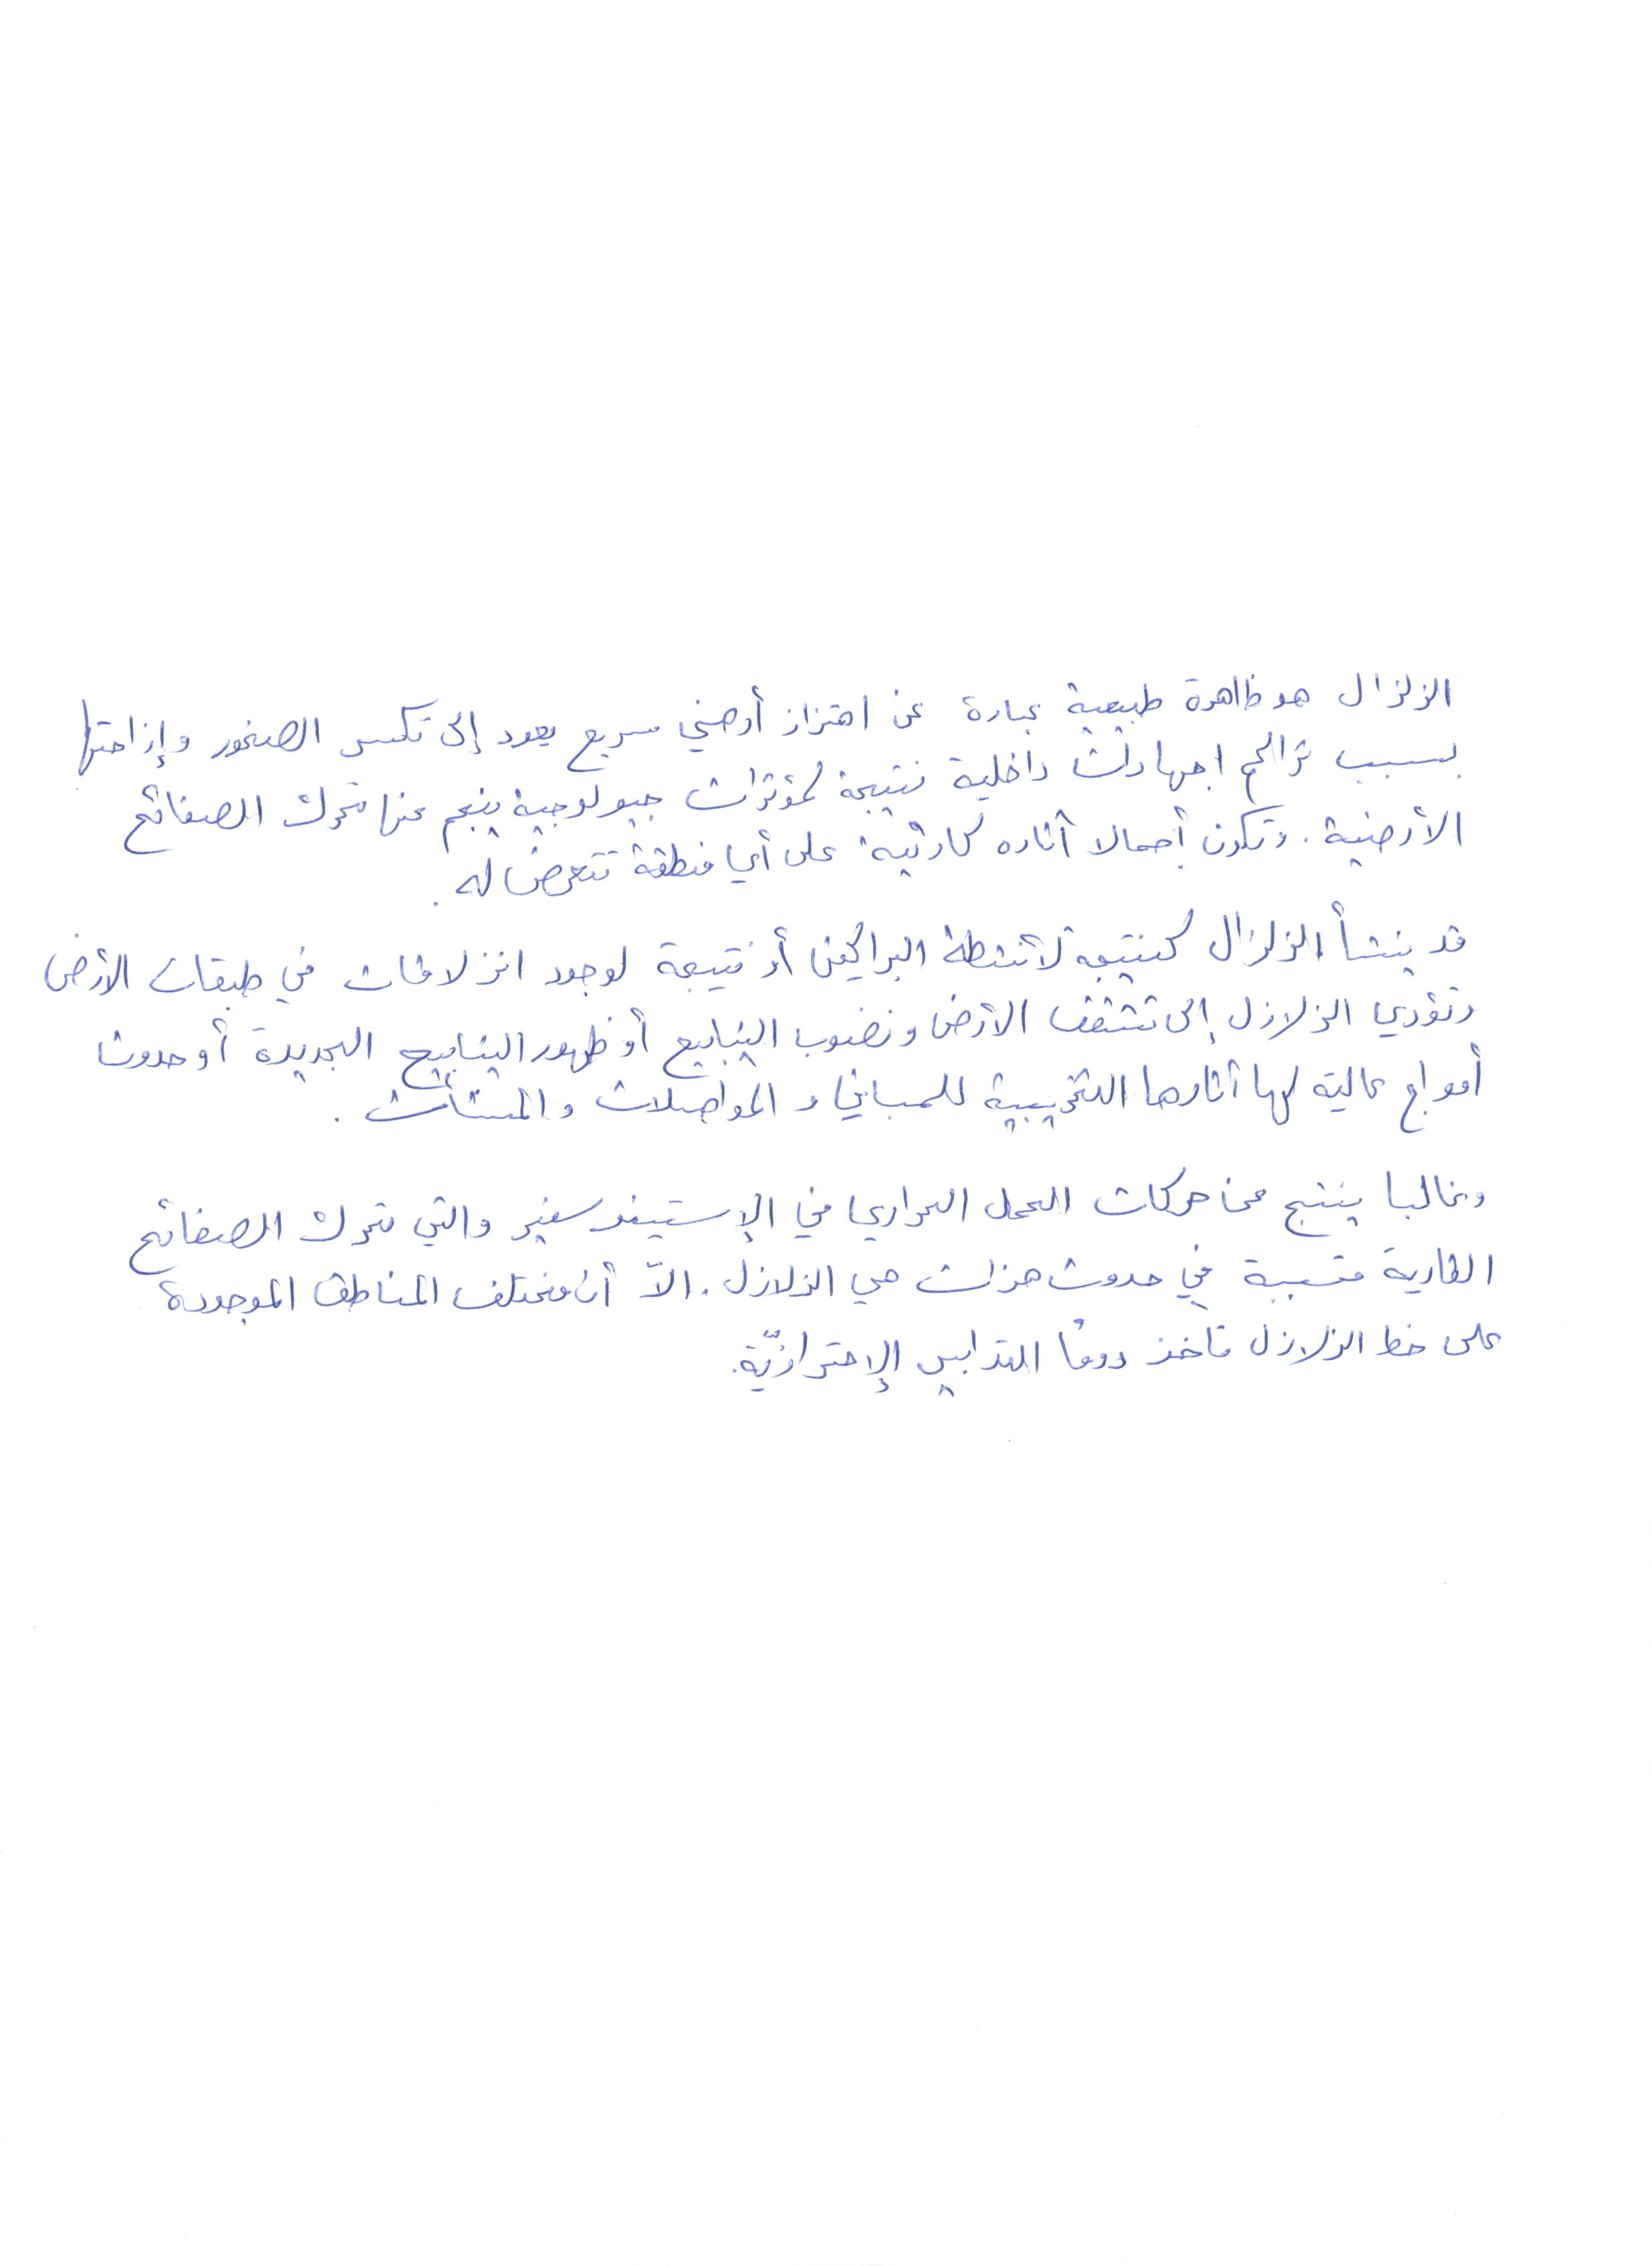 الزلزال هو ظاهرة طبيعية عبارة عن اهتزاز أرضي سريع يعود إلى تكسر الصخور وإزاحتها
بسبب تراكم اجهادات داخلية نتيجة لمؤثرات جيولوجية ينجم عنها تحرك الصفائح
الأرضية. وتكون أجمالا آثاره كارثية على أي منطقة تتعرض له.
قد ينشأ الزلزال كنتيجة لأنشطة البراكين أو نتيجة لوجود انزلاقات في طبقات الأرض
وتؤدي الزلازل إلى تشقق الأرض ونضوب الينابيع أو ظهور الينابيع الجديدة أو حدوث
أمواج عالية لها آثارها التخريبية للمباني و المواصلات والمنشآت.
وغالبا ينتج عن حركات الحمل الحراري في الإستينوسفير والتي تحرك الصفائح
القارية متسببة في حدوث هزات هي الزلازل. الاّ أن مختلف المناطق الموجودة
على خط الزلازل تأخذ دومًا التدابير الإحترازيّة.